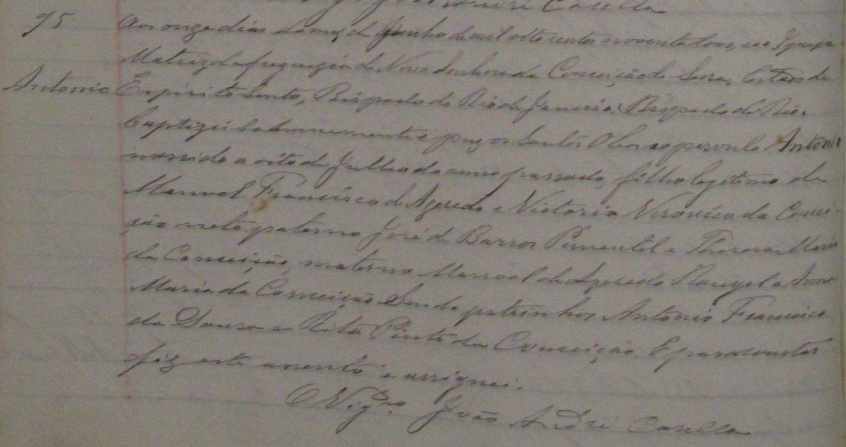 João André Casella
75
Aos onze dias do mez de Junho de mil oito centos noventa dous, na Igreja
Matriz da freguezia de Nossa Senhora da Conceição da Serra, Estado do
Antonio Espirito Santo, Bispado do Rio de Janeiro, Bispado do Rio.
baptizei solemnemente e puz os Santos Oleos ao parvulo Antonio
nascido a oito de Julho do anno passado, filho legitimo de
Manoel Francisco de Azeredo e Victoria Veronica da Concei-
ção neto paterno José de Barros Pimentel e Thereza Maria
da Conceição, materno Manoel de Azeredo Rangel e Anna
Maria da Conceição. Sendo padrinhos Antonio Francisco
de Souza e Rita Pinto da Conceição. E para constar
fiz este assento e assignei.
O Vigro. João André Casella